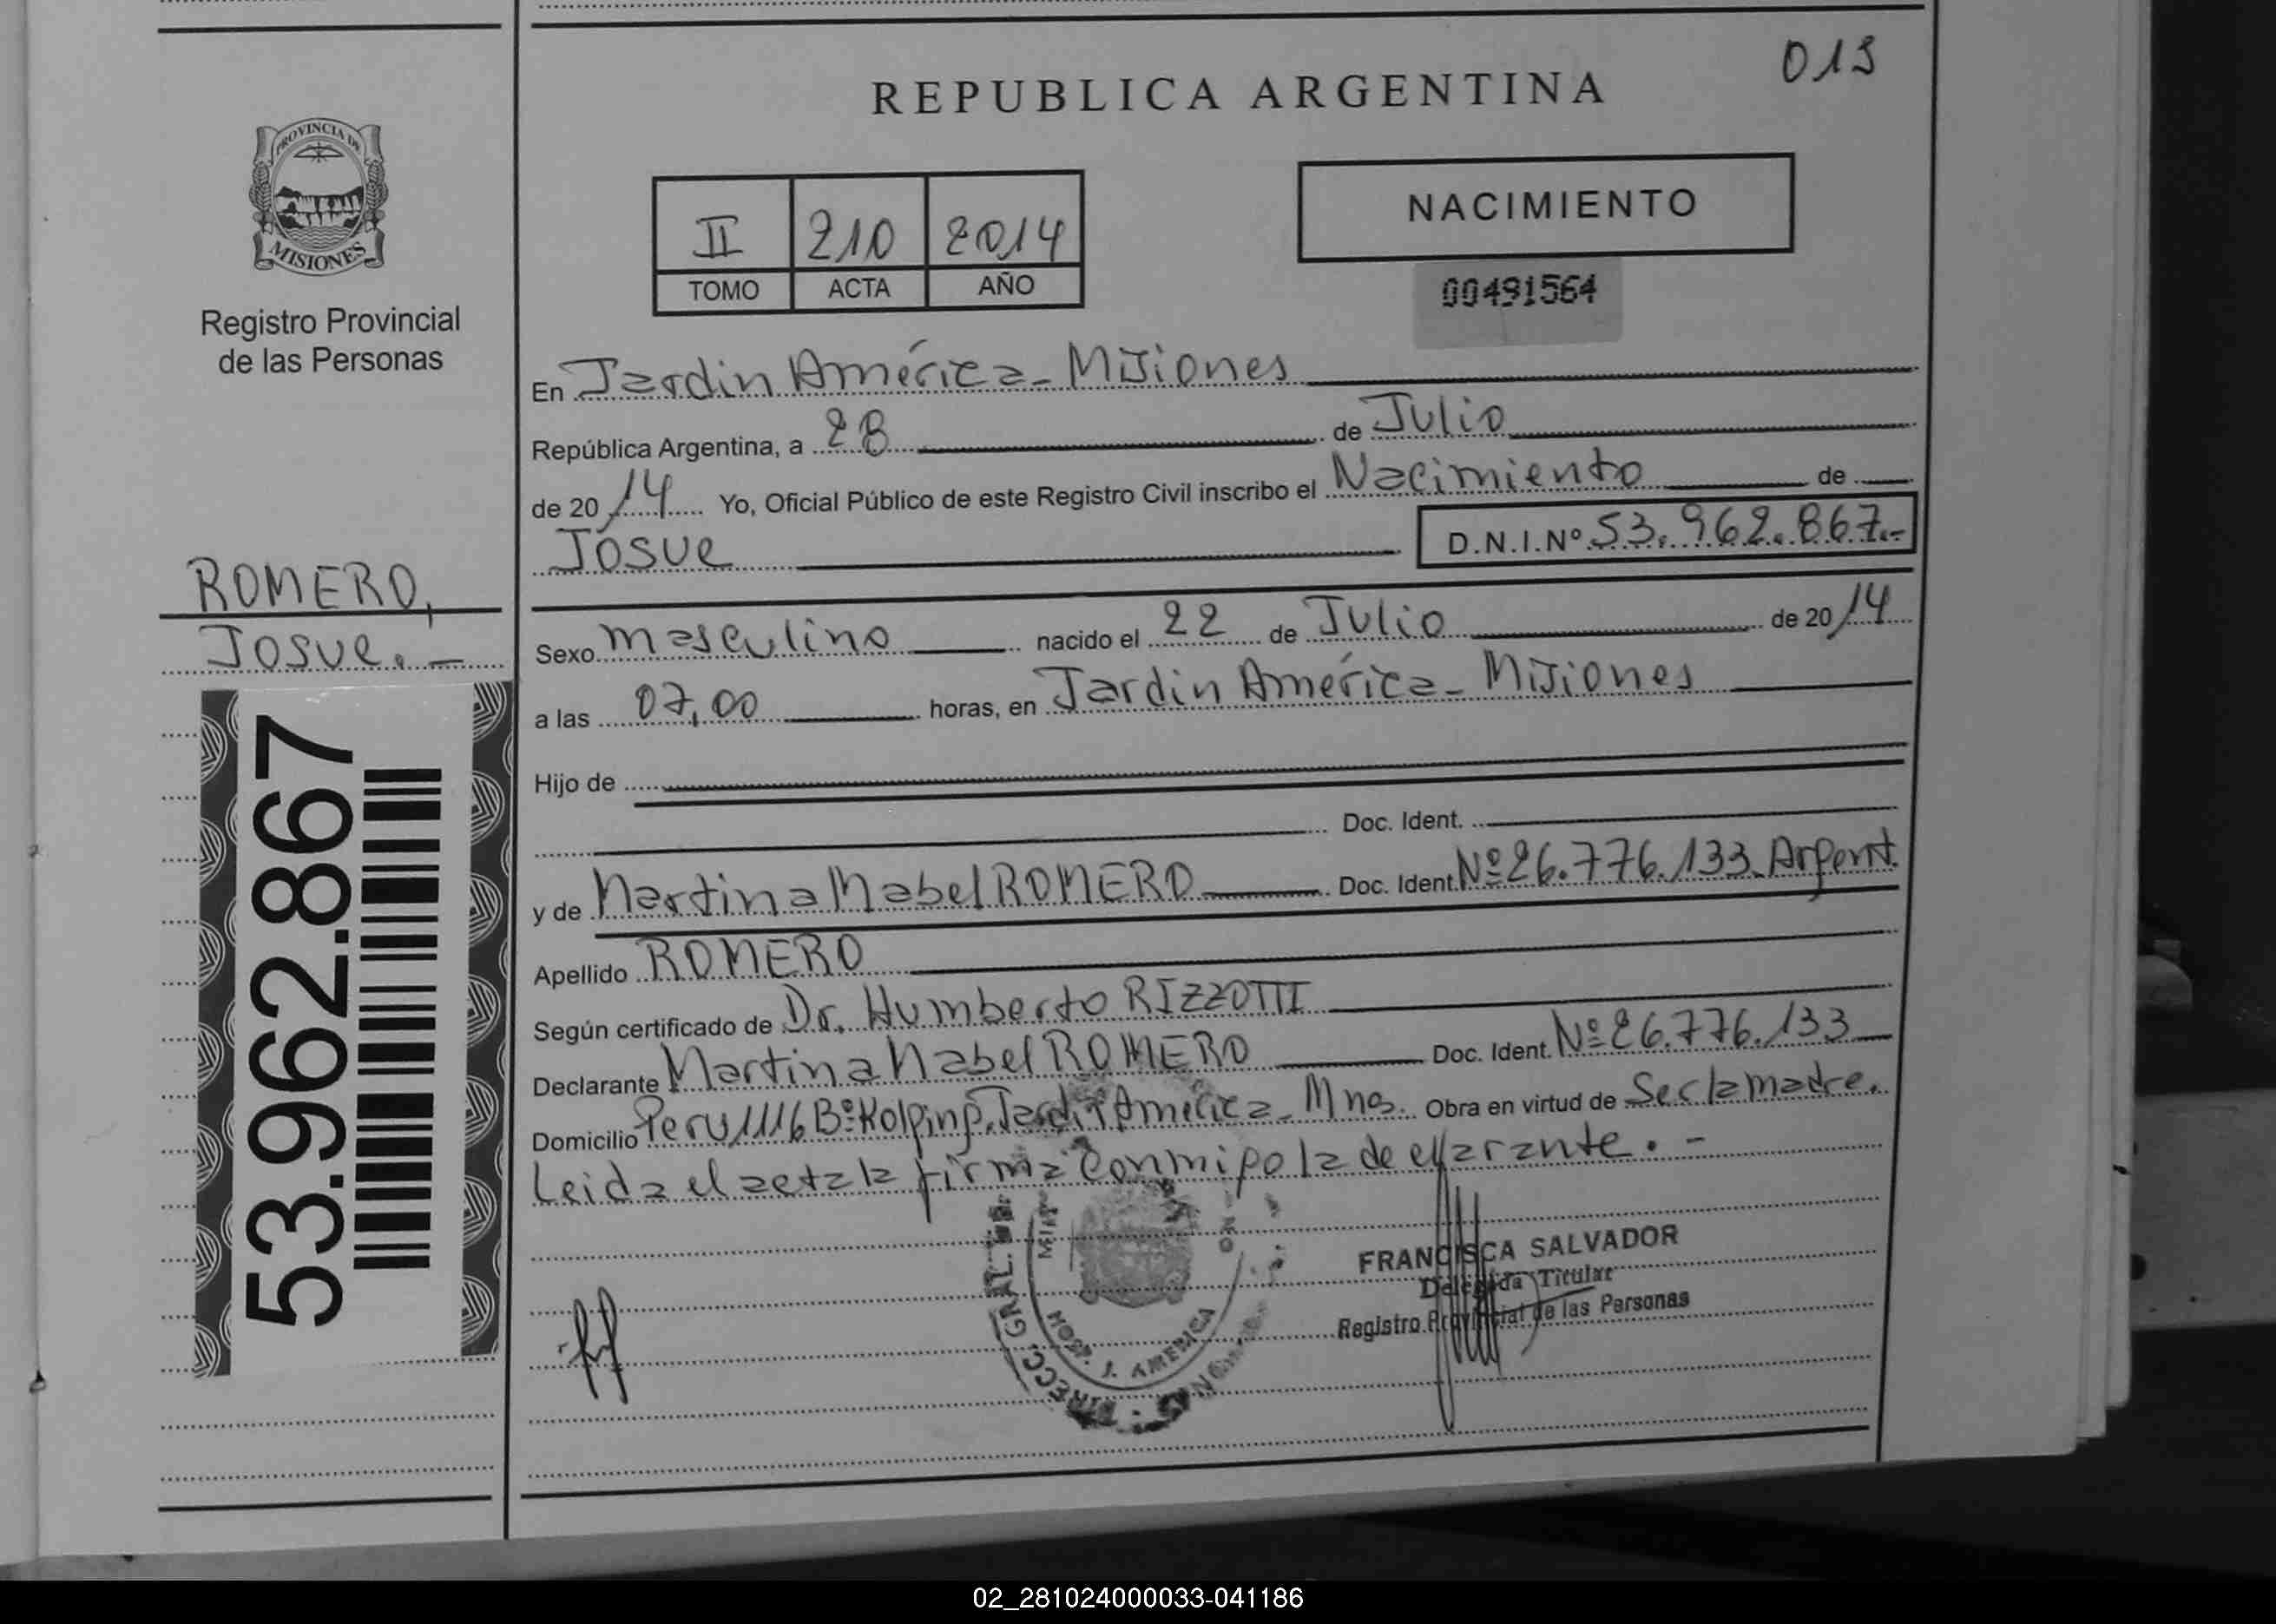 013
REPUBLICA ARGENTINA
PROVINCIA DE
MISIONES
Registro Provincial
de las Personas
II 210 2014
TOMO ACTA AÑO
NACIMIENTO
00491564
En Jardin América - Misiones
República Argentina, a 28 de Julio
de 2014 Yo, Oficial Público de este Registro Civil inscribo el Nacimiento de
Josue D.N.I.Nº 53.962.867.-
ROMERO,
Josue. -
53.962.867
Sexo masculino nacido el 22 de Julio de 2014
a las 07,00 horas, en Jardin América - Misiones
Hijo de
Doc. Ident.
y de Martina Mabel ROMERO Doc. Ident. Nº 26.776.133. Argent.
Apellido ROMERO
Según certificado de Dr. Humberto RIZZOTTI
Declarante Martina Mabel ROMERO Doc. Ident. Nº 26.776.133
Domicilio Peru 1116 Bº: Kolping. Jardin América - Mnes. Obra en virtud de Ser la madre.
Leida el acta la firma conmigo la declarante. -
FRANCISCA SALVADOR
Delegada Titular
Registro Provincial de las Personas
DIRECC. GRAL. DE
HOSP. J. AMERICA
02_281024000033-041186